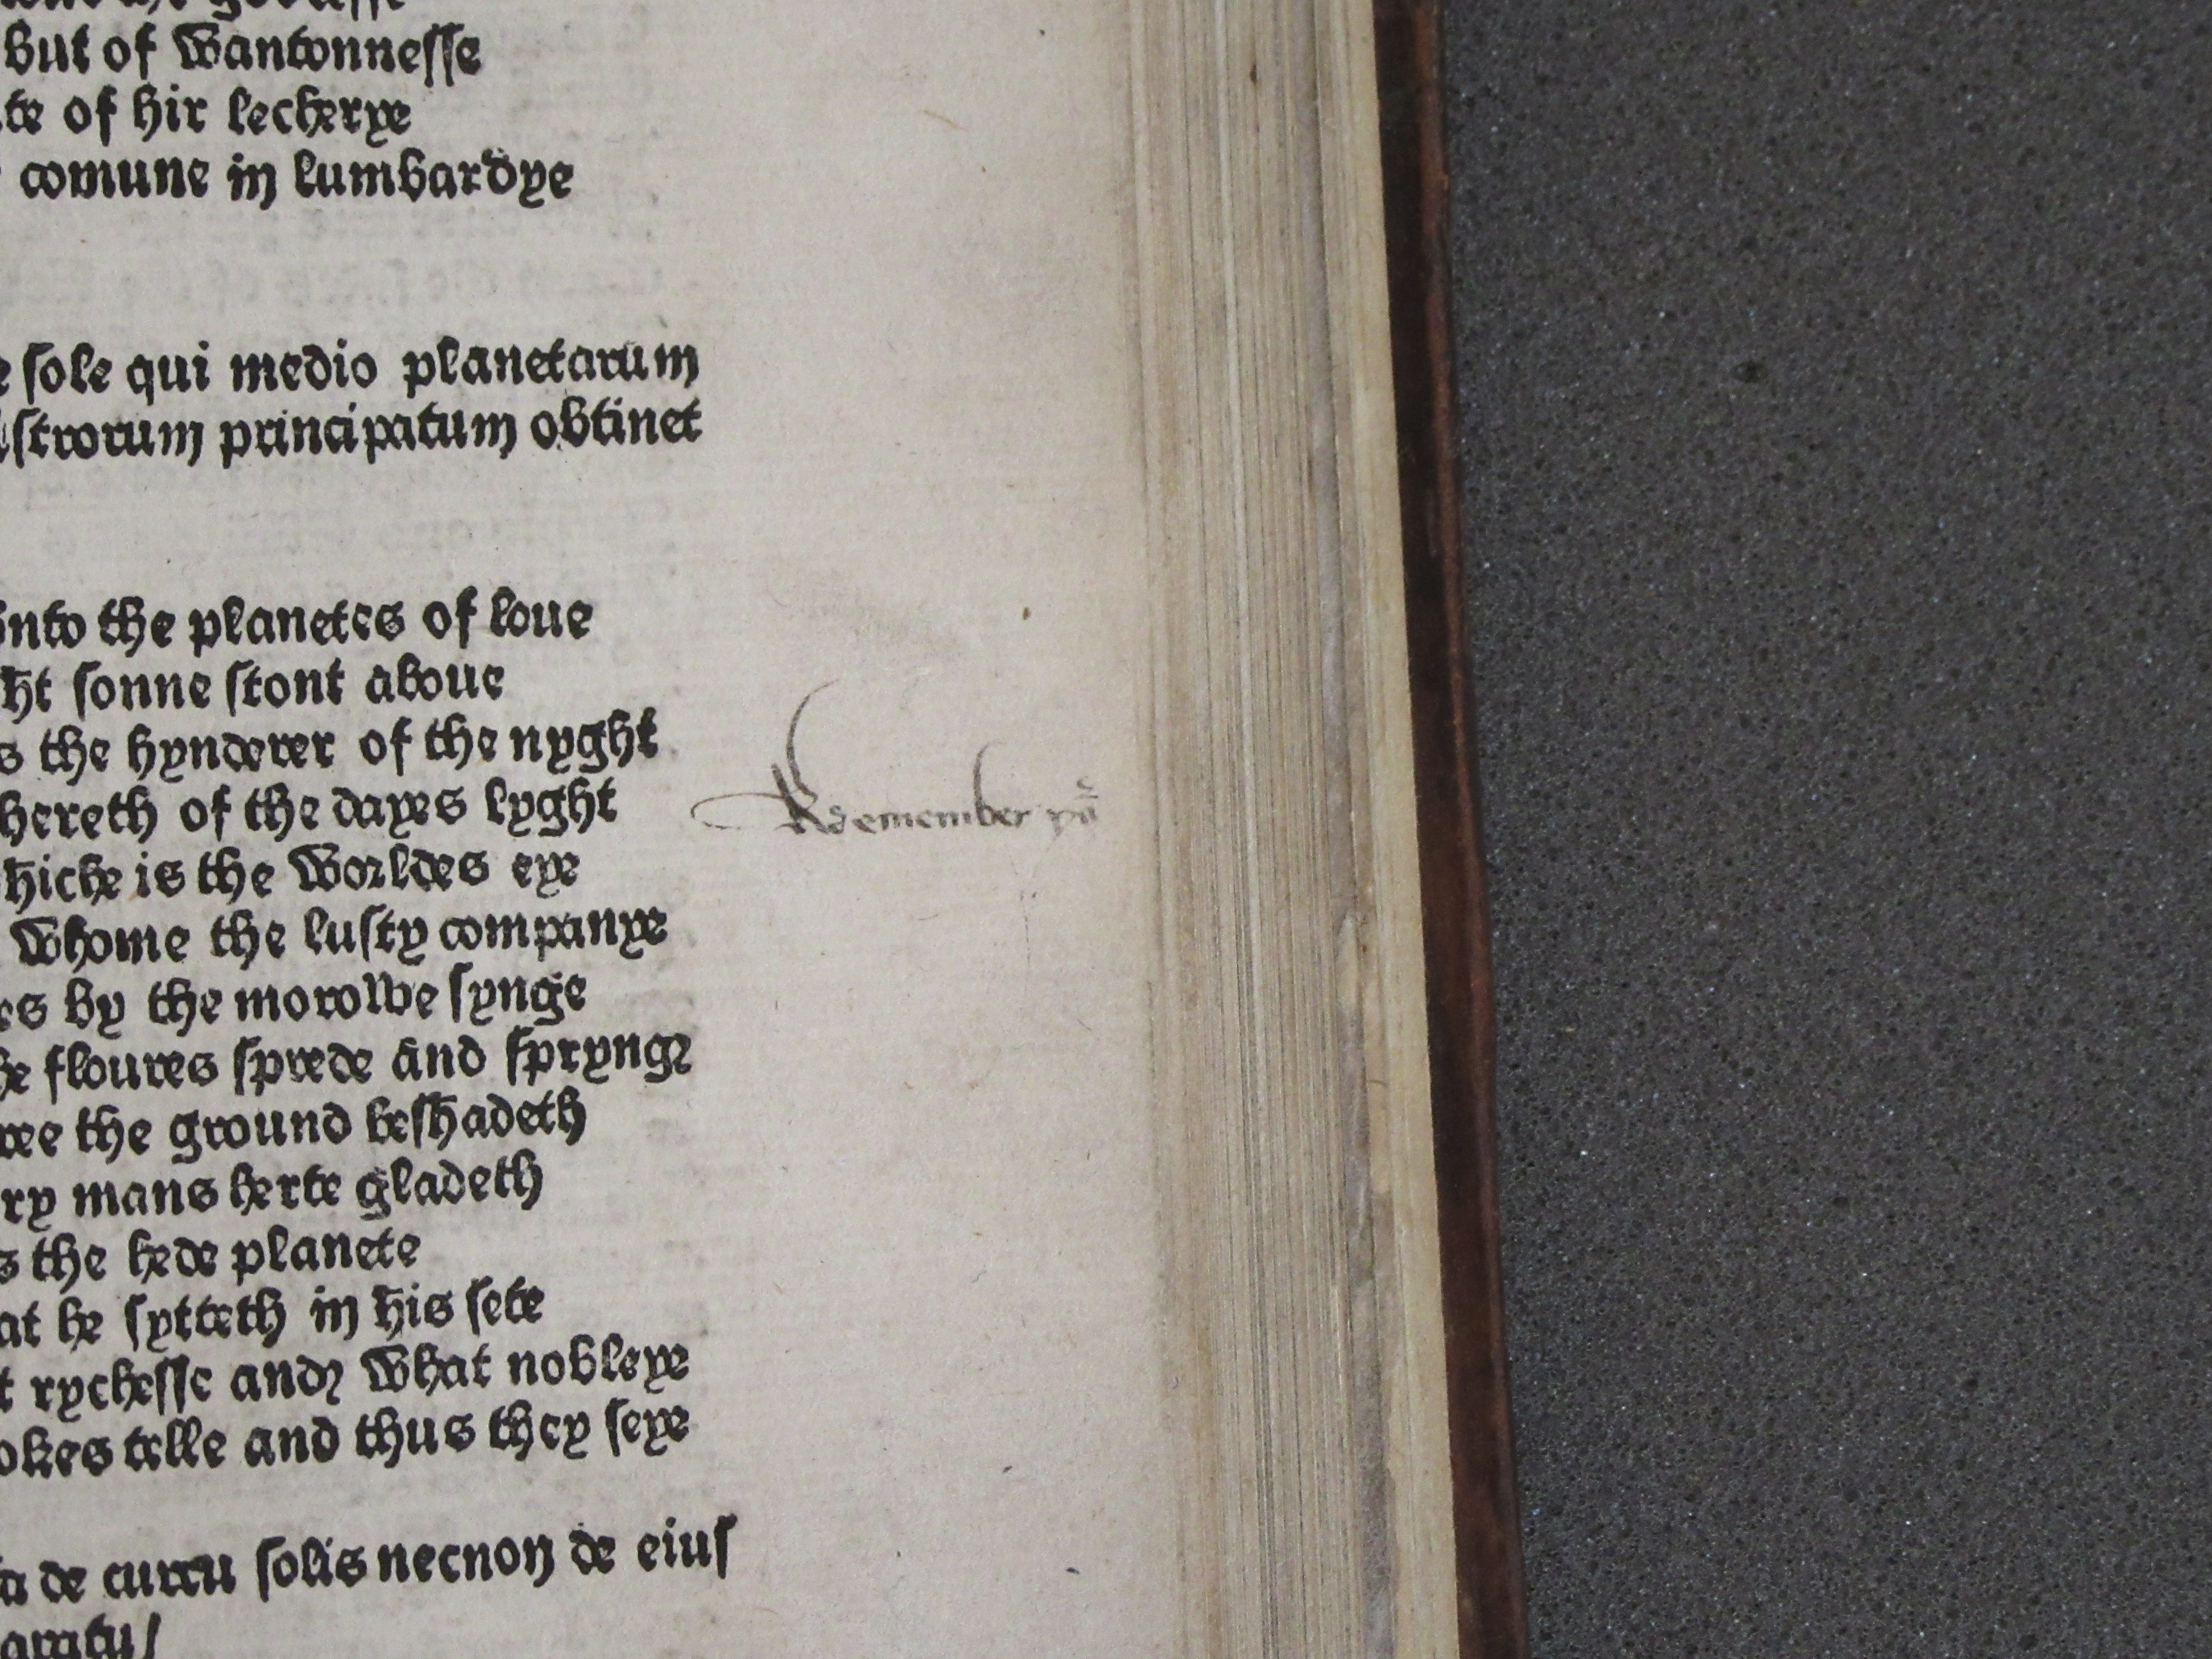 But of Wantonnesse
te of hir lecherye
comune in lumbardye
e sole qui medio planetarum
astrorum principatum obtinet
unto the planetes of loue
ht sonne stont aboue
s the hynderer of the nyght
hereth of the dayes lyght
Remember
hiche is the Worldes eye
Whome the lusty companye
es by the morowe synge
he floures sprede and sprynge
ree the ground beshadeth
ry mans herte gladeth
s the hede planete
at he sytteth in his sete
t rychesse and What nobleye
okes telle and thus they seye
ta de curru solis necnon de eius